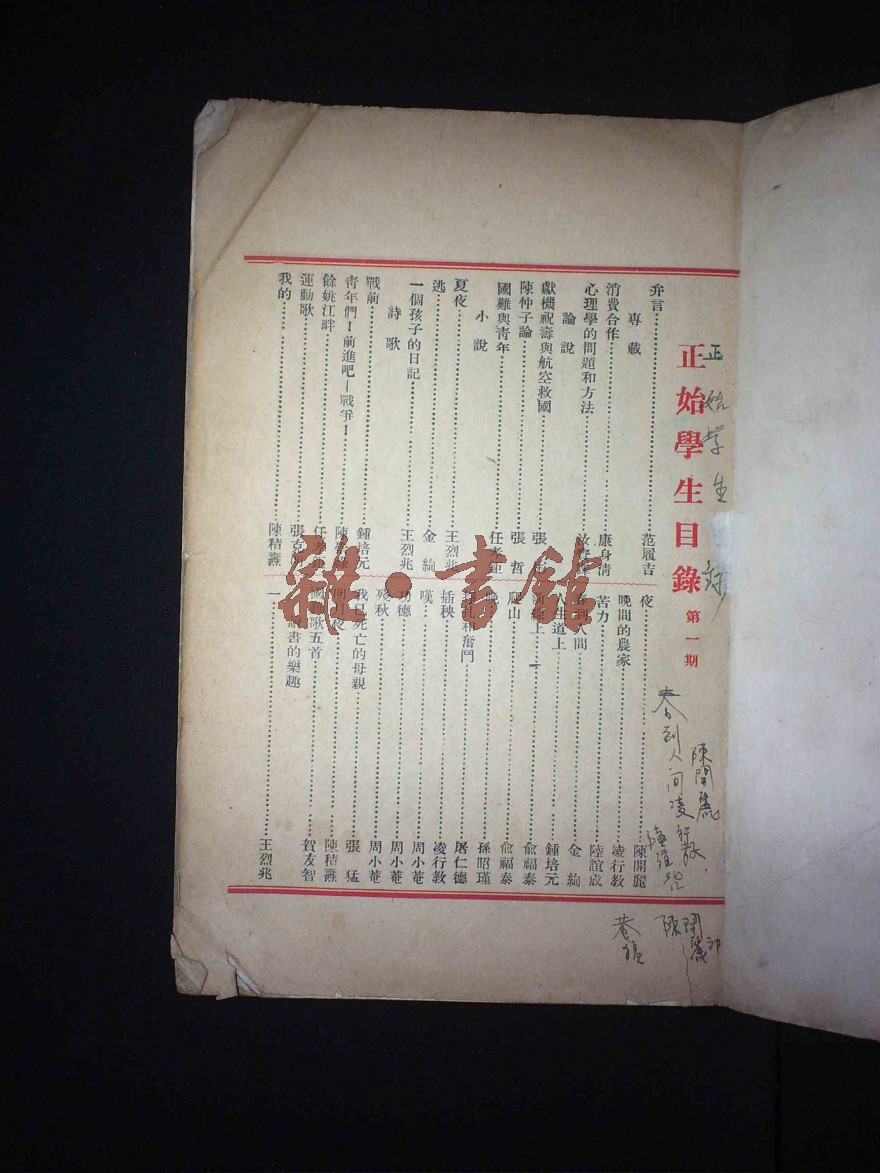 正始學生目錄 第一期
弁言 范履吉
專載
消費合作 康身清
心理學的問題和方法
論說
獻機祝壽與航空救國 張
陳仲子論 張哲
國難與青年 任孝
小說
夏夜 王烈兆
逃 金絢
一個孩子的日記 王烈兆
詩歌
戰前 鍾培元
青年們！前進吧－戰爭！ 陳
餘姚江畔 任孝
運動歌 張克
我的…… 陳秸燾
夜 陳開麗
晚間的農家 凌行教
苦力 陸誼成
春到人間 金絢
生道上 鍾培元
上 俞福泰
山 俞福泰
孫昭瑾
和奮鬥 屠仁德
插秧 凌行教
嘆 周小菴
功德 周小菴
殘秋 周小菴
我已死亡的母親 張猛
明月夜 陳秸燾
國 歌五首 賀友智
書的樂趣
一 王烈兆
正始學生
春到人间凌行教
陳開麗
陸誼
陳開麗
雜·書館